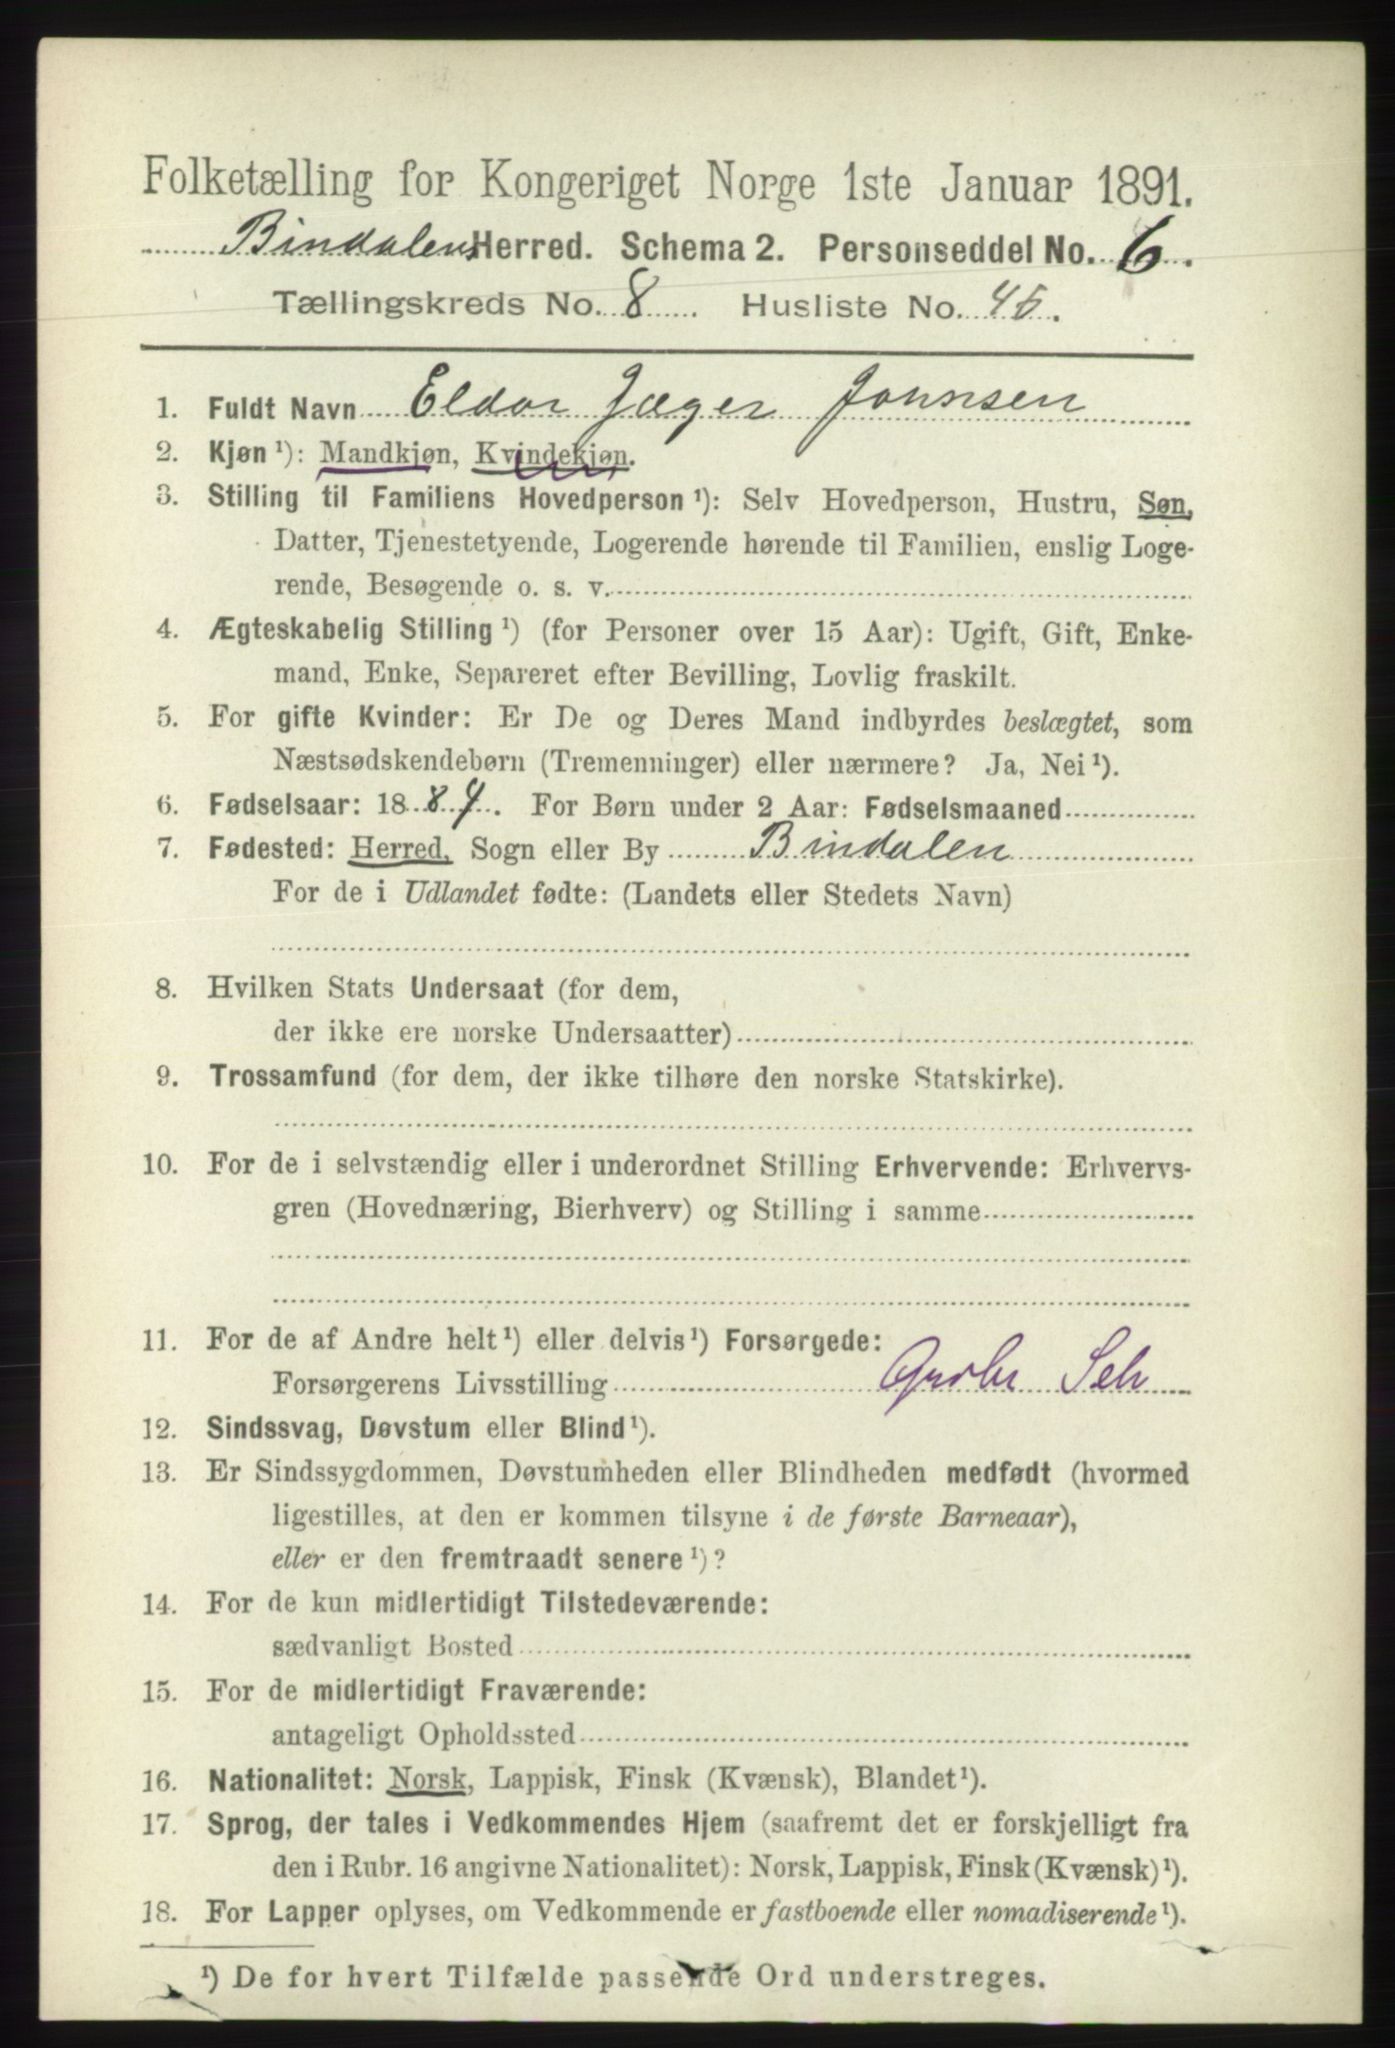 Folketælling for Kongeriget Norge 1ste Januar 1891.
Bindalens Herred. Schema 2. Personseddel No. 6.
Tællingskreds No. 8 Husliste No. 45.
1. Fuldt Navn Eldor Jæger Johnsen
2. Kjøn ¹): Mandkjøn, Kvindekjøn.
3. Stilling til Familiens Hovedperson ¹): Selv Hovedperson, Hustru, Søn,
Datter, Tjenestetyende, Logerende hørende til Familien, enslig Loge-
rende, Besøgende o. s. v.
4. Ægteskabelig Stilling ¹) (for Personer over 15 Aar): Ugift, Gift, Enke-
mand, Enke, Separeret efter Bevilling, Lovlig fraskilt.
5. For gifte Kvinder: Er De og Deres Mand indbyrdes beslægtet, som
Næstsødskendebørn (Tremenninger) eller nærmere? Ja, Nei ¹).
6. Fødselsaar: 1884. For Børn under 2 Aar: Fødselsmaaned
7. Fødested: Herred, Sogn eller By Bindalen
For de i Udlandet fødte: (Landets eller Stedets Navn)
8. Hvilken Stats Undersaat (for dem,
der ikke ere norske Undersaatter)
9. Trossamfund (for dem, der ikke tilhøre den norske Statskirke).
10. For de i selvstændig eller i underordnet Stilling Erhvervende: Erhvervs-
gren (Hovednæring, Bierhverv) og Stilling i samme
11. For de af Andre helt ¹) eller delvis ¹) Forsørgede:
Forsørgerens Livsstilling
12. Sindssvag, Døvstum eller Blind ¹).
13. Er Sindssygdommen, Døvstumheden eller Blindheden medfødt (hvormed
ligestilles, at den er kommen tilsyne i de første Barneaar),
eller er den fremtraadt senere ¹)?
14. For de kun midlertidigt Tilstedeværende:
sædvanligt Bosted
15. For de midlertidigt Fraværende:
antageligt Opholdssted
16. Nationalitet: Norsk, Lappisk, Finsk (Kvænsk), Blandet ¹).
17. Sprog, der tales i Vedkommendes Hjem (saafremt det er forskjelligt fra
den i Rubr. 16 angivne Nationalitet): Norsk, Lappisk, Finsk (Kvænsk) ¹).
18. For Lapper oplyses, om Vedkommende er fastboende eller nomadiserende ¹).
¹) De for hvert Tilfælde passende Ord understreges.